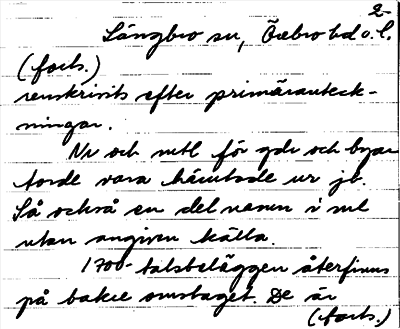 2.
Längbro sn, Örebro hd o. l.
(forts.)
renskrivits efter primäranteck-
ningar.
Nr och mtl för gdr och byar
torde vara hämtade ur jb.
Så också en del namn i ml
utan angiven källa.
1700-talsbeläggen återfinns
på bakre omslaget. De är
(forts.)